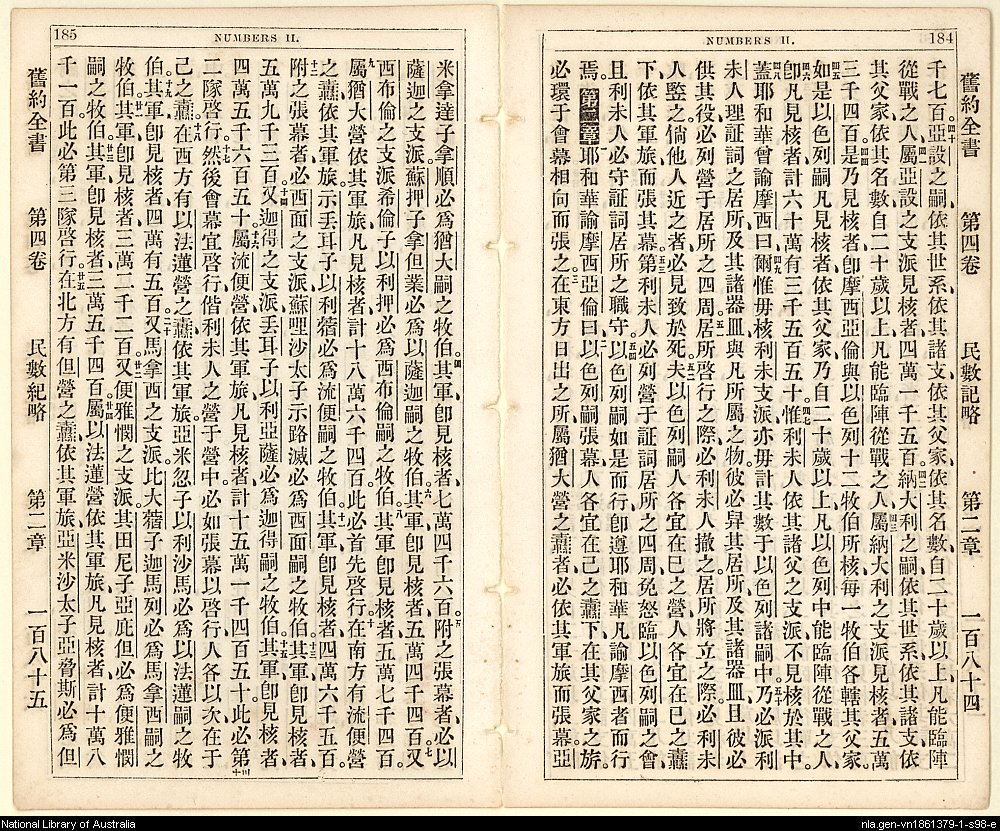 184
NUMBERS II.
舊約全書 第四卷 民數記略 第二章 一百八十四
千七百。四十亞設之嗣、依其世系、依其諸支、依其父家、依其名數、自二十歲以上、凡能臨陣
從戰之人、四一屬亞設之支派見核者、四萬一千五百。四二納大利之嗣、依其世系、依其諸支、依
其父家、依其名數、自二十歲以上、凡能臨陣從戰之人、四三屬納大利之支派見核者、五萬
三千四百。四四是乃見核者、卽摩西亞倫與以色列十二牧伯所核、每一牧伯各轄其父家。
四五如是以色列嗣凡見核者、依其父家、乃自二十歲以上、凡以色列中能臨陣從戰之人、
四六卽凡見核者、計六十萬有三千五百五十。四七惟利未人依其諸父之支派、不見核於其中。
四八蓋耶和華曾諭摩西曰、四九爾惟毋核利未支派、亦毋計其數于以色列諸嗣中、五十乃必派利
未人理証詞之居所、及其諸器皿、與凡所屬之物、彼必舁其居所、及其諸器皿、且彼必
供其役、必列營于居所之四周。五一居所啓行之際、必利未人撤之、居所將立之際、必利未
人竪之、倘他人近之者、必見致於死。五二夫以色列嗣人各宜在己之營、人各宜在己之纛
下、依其軍旅而張其幕。五三第利未人必列營于証詞居所之四周、免怒臨以色列嗣之會、
且利未人必守証詞居所之職守。五四以色列嗣如是而行、卽遵耶和華凡諭摩西者而行
焉。第二章 耶和華諭摩西亞倫曰、二以色列嗣張幕、人各宜在己之纛下、在其父家之旂、
必環于會幕相向而張之。三在東方日出之所、屬猶大營之纛者、必依其軍旅而張幕、亞
185
NUMBERS II.
米拿達子拿順必爲猶大嗣之牧伯。四其軍卽見核者、七萬四千六百。五附之張幕者必以
薩迦之支派、蘇押子拿但業必爲以薩迦嗣之牧伯。六其軍卽見核者、五萬四千四百。七又
西布倫之支派、希倫子以利押必爲西布倫嗣之牧伯。八其軍卽見核者、五萬七千四百。
九屬猶大營、依其軍旅、凡見核者、計十八萬六千四百。此必首先啓行。十在南方有流便營
之纛、依其軍旅、示丟耳子以利蓿必爲流便嗣之牧伯。十一其軍卽見核者、四萬六千五百。
十二附之張幕者、必西面之支派、蘇哩沙太子示路滅必爲西面嗣之牧伯。十三其軍卽見核者、
五萬九千三百。十四又迦得之支派、丟耳子以利亞薩必爲迦得嗣之牧伯。十五其軍卽見核者、
四萬五千六百五十。十六屬流便營、依其軍旅、凡見核者、計十五萬一千四百五十。此必第
二隊啓行。十七然後會幕宜啓行、偕利未人之營、于營中、必如張幕以啓行、人各以次在于
己之纛。十八在西方有以法蓮營之纛、依其軍旅、亞米忽子以利沙馬必爲以法蓮嗣之牧
伯。十九其軍卽見核者、四萬有五百。二十又馬拿西之支派、比大蓿子迦馬列必爲馬拿西嗣之
牧伯。廿一其軍卽見核者、三萬二千二百。廿二又便雅憫之支派、其田尼子亞庇但必爲便雅憫
嗣之牧伯。廿三其軍卽見核者、三萬五千四百。廿四屬以法蓮營、依其軍旅、凡見核者、計十萬八
千一百。此必第三隊啓行。廿五在北方有但營之纛、依其軍旅、亞米沙太子亞脅斯必爲但
舊約全書 第四卷 民數紀略 第二章 一百八十五
National Library of Australia
nla.gen-vn1861379-1-s98-e